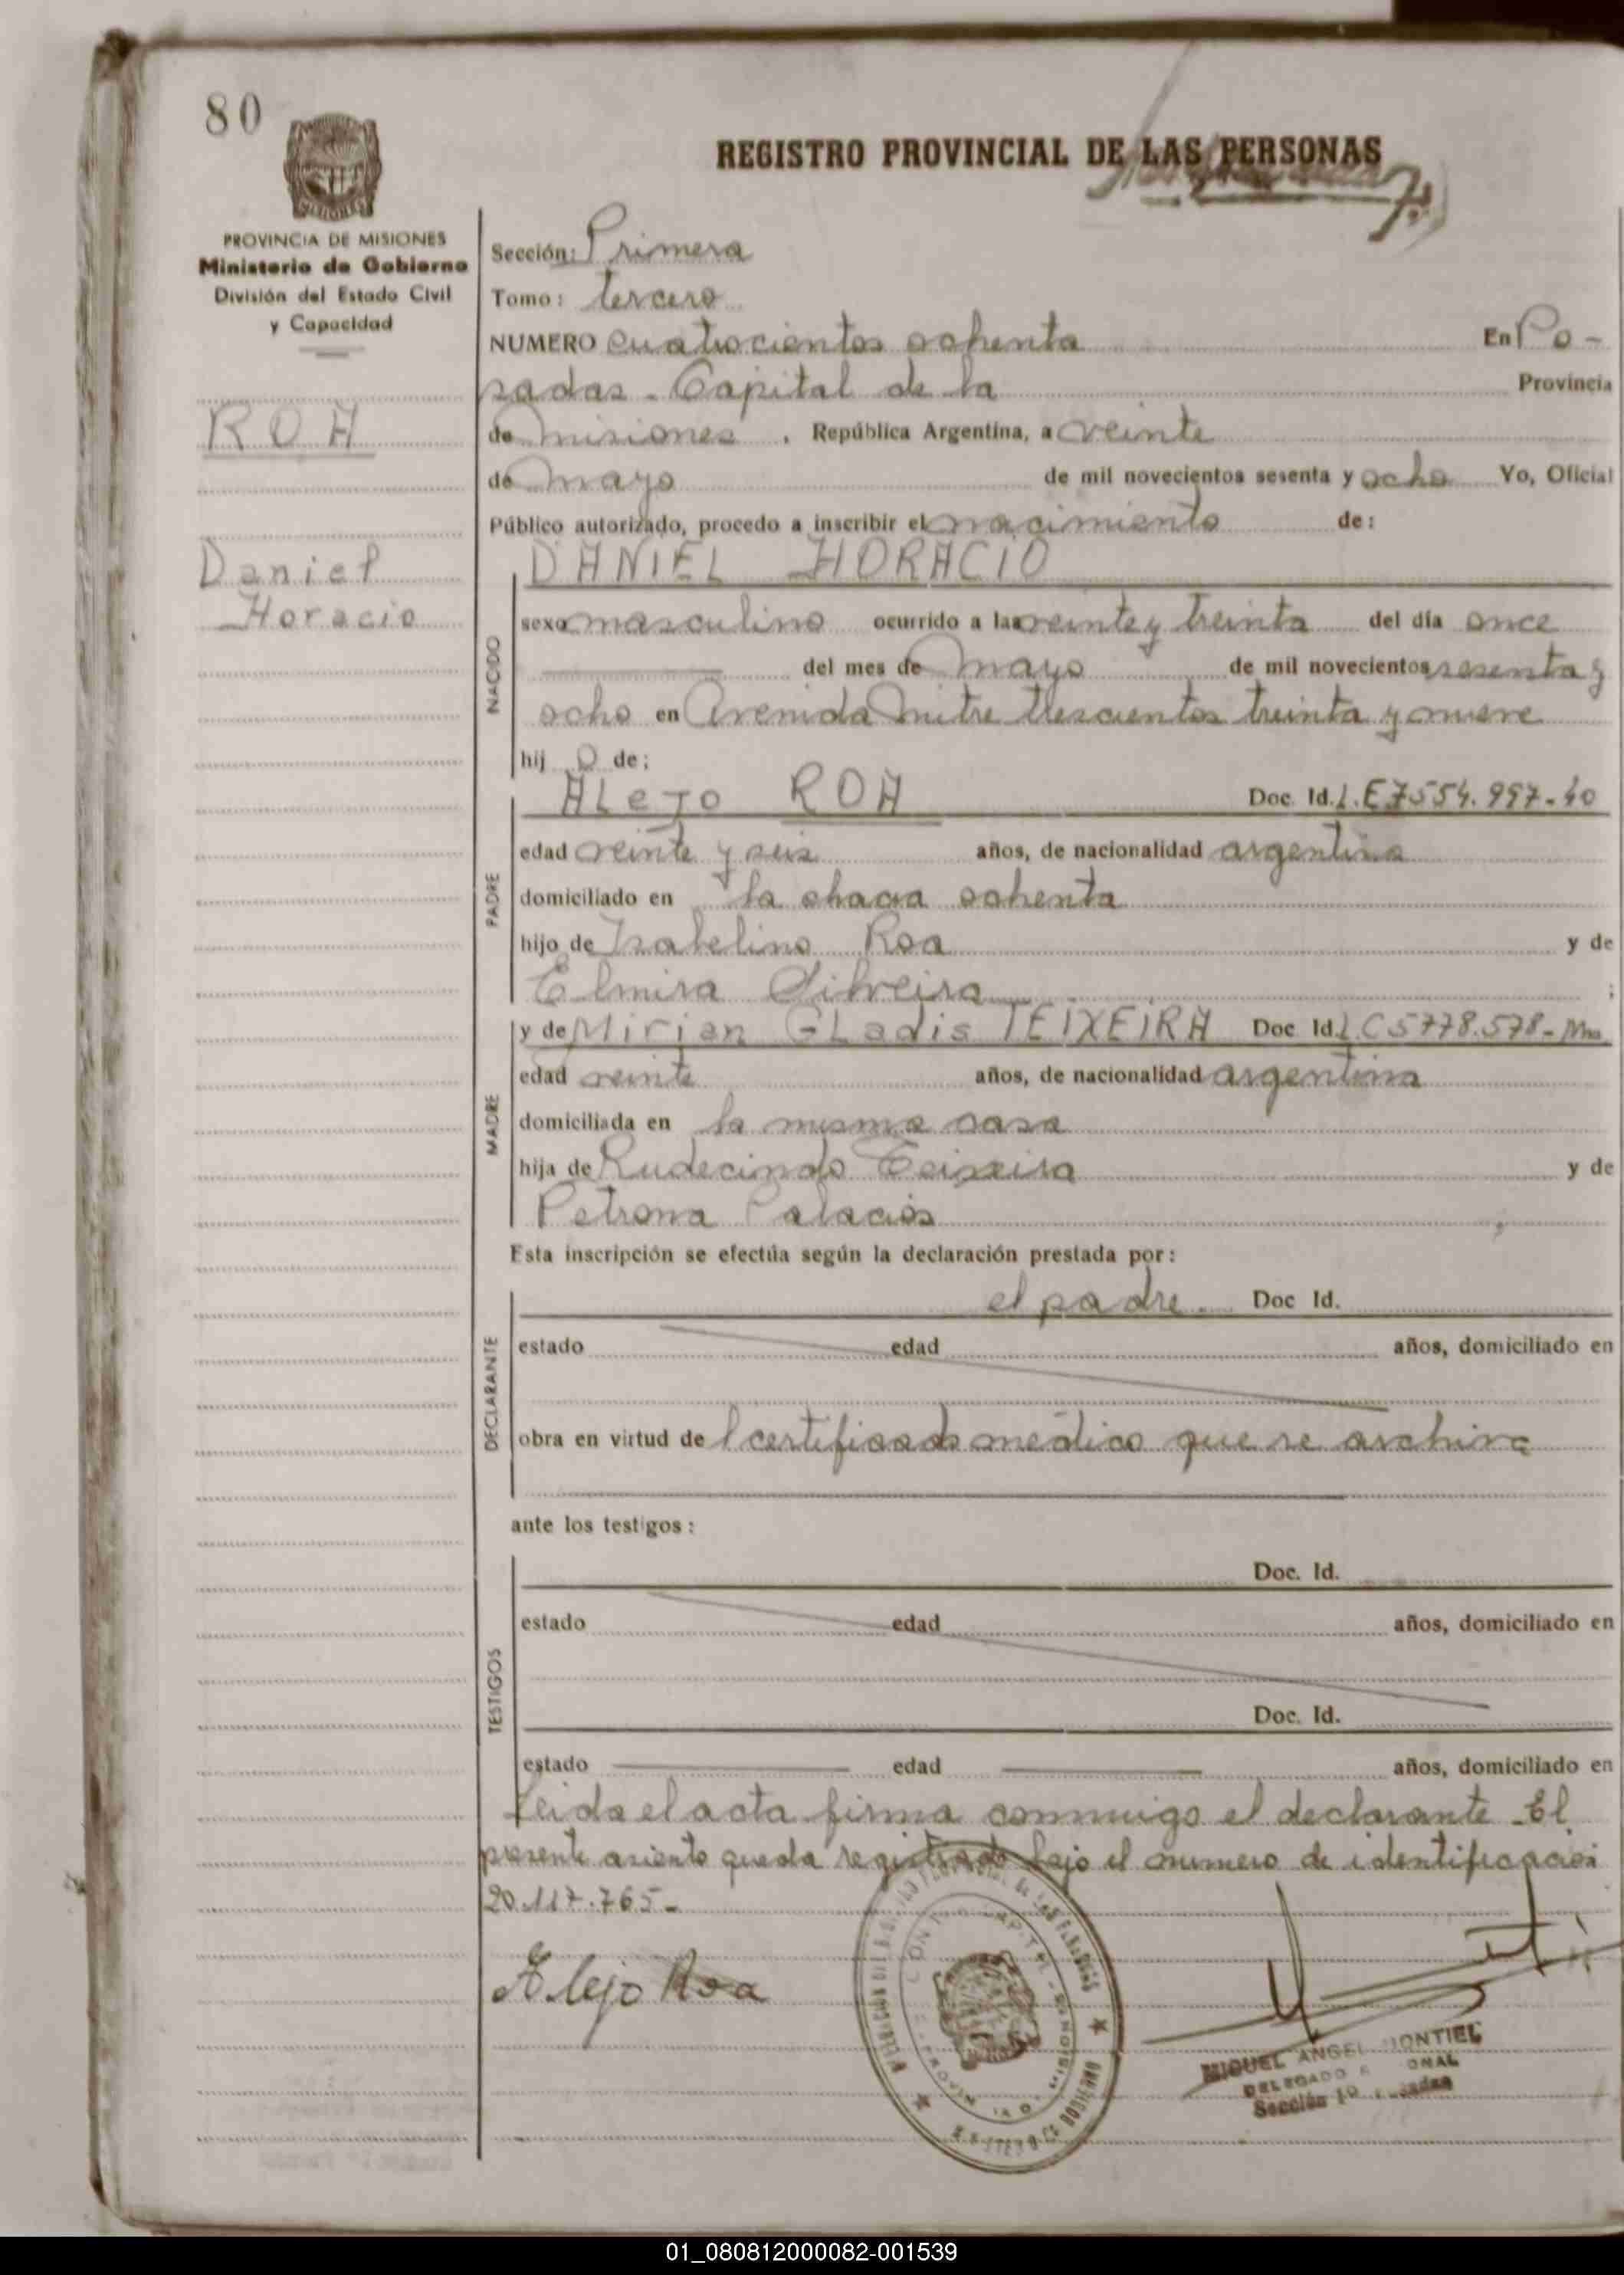 80
REGISTRO PROVINCIAL DE LAS PERSONAS
PROVINCIA DE MISIONES
Ministerio de Gobierno
División del Estado Civil
y Capacidad
ROA
Daniel
Horacio
Sección: Primera
Tomo: tercero
NUMERO cuatrocientos ochenta En Po-
sadas - Capital de la Provincia
de misiones . República Argentina, a veinte
de mayo de mil novecientos sesenta y ocho Yo, Oficial
Público autorizado, procedo a inscribir el nacimiento de:
DANIEL HORACIO
NACIDO
sexo masculino ocurrido a las veinte y treinta del día once
del mes de mayo de mil novecientos sesenta y
ocho en Avenida mitre trescientos treinta y nueve
hij o de:
PADRE
ALeJo ROA Doc. Id. L.E 7554.997-40
edad veinte y seis años, de nacionalidad argentina
domiciliado en la chacra ochenta
hijo de Isabelino Roa y de
Elmira Silveira ;
MADRE
y de Mirian GLadis TEIXEIRA Doc Id. L.C 5778.578- Mna
edad veinte años, de nacionalidad argentina
domiciliada en la misma casa
hija de Rudecindo Teixeira y de
Petrona Palacios
Esta inscripción se efectúa según la declaración prestada por:
DECLARANTE
el padre. Doc Id.
estado edad años, domiciliado en
obra en virtud de l certificado médico que se archiva
ante los testigos:
TESTIGOS
Doc. Id.
estado edad años, domiciliado en
Doc. Id.
estado edad años, domiciliado en
Leida el acta firma conmigo el declarante - El
presente asiento queda registrado bajo el numero de identificación
20.117.765-
Alejo Roa
MIGUEL ANGEL MONTIEL
DELEGADO
Sección 1a
01_080812000082-001539